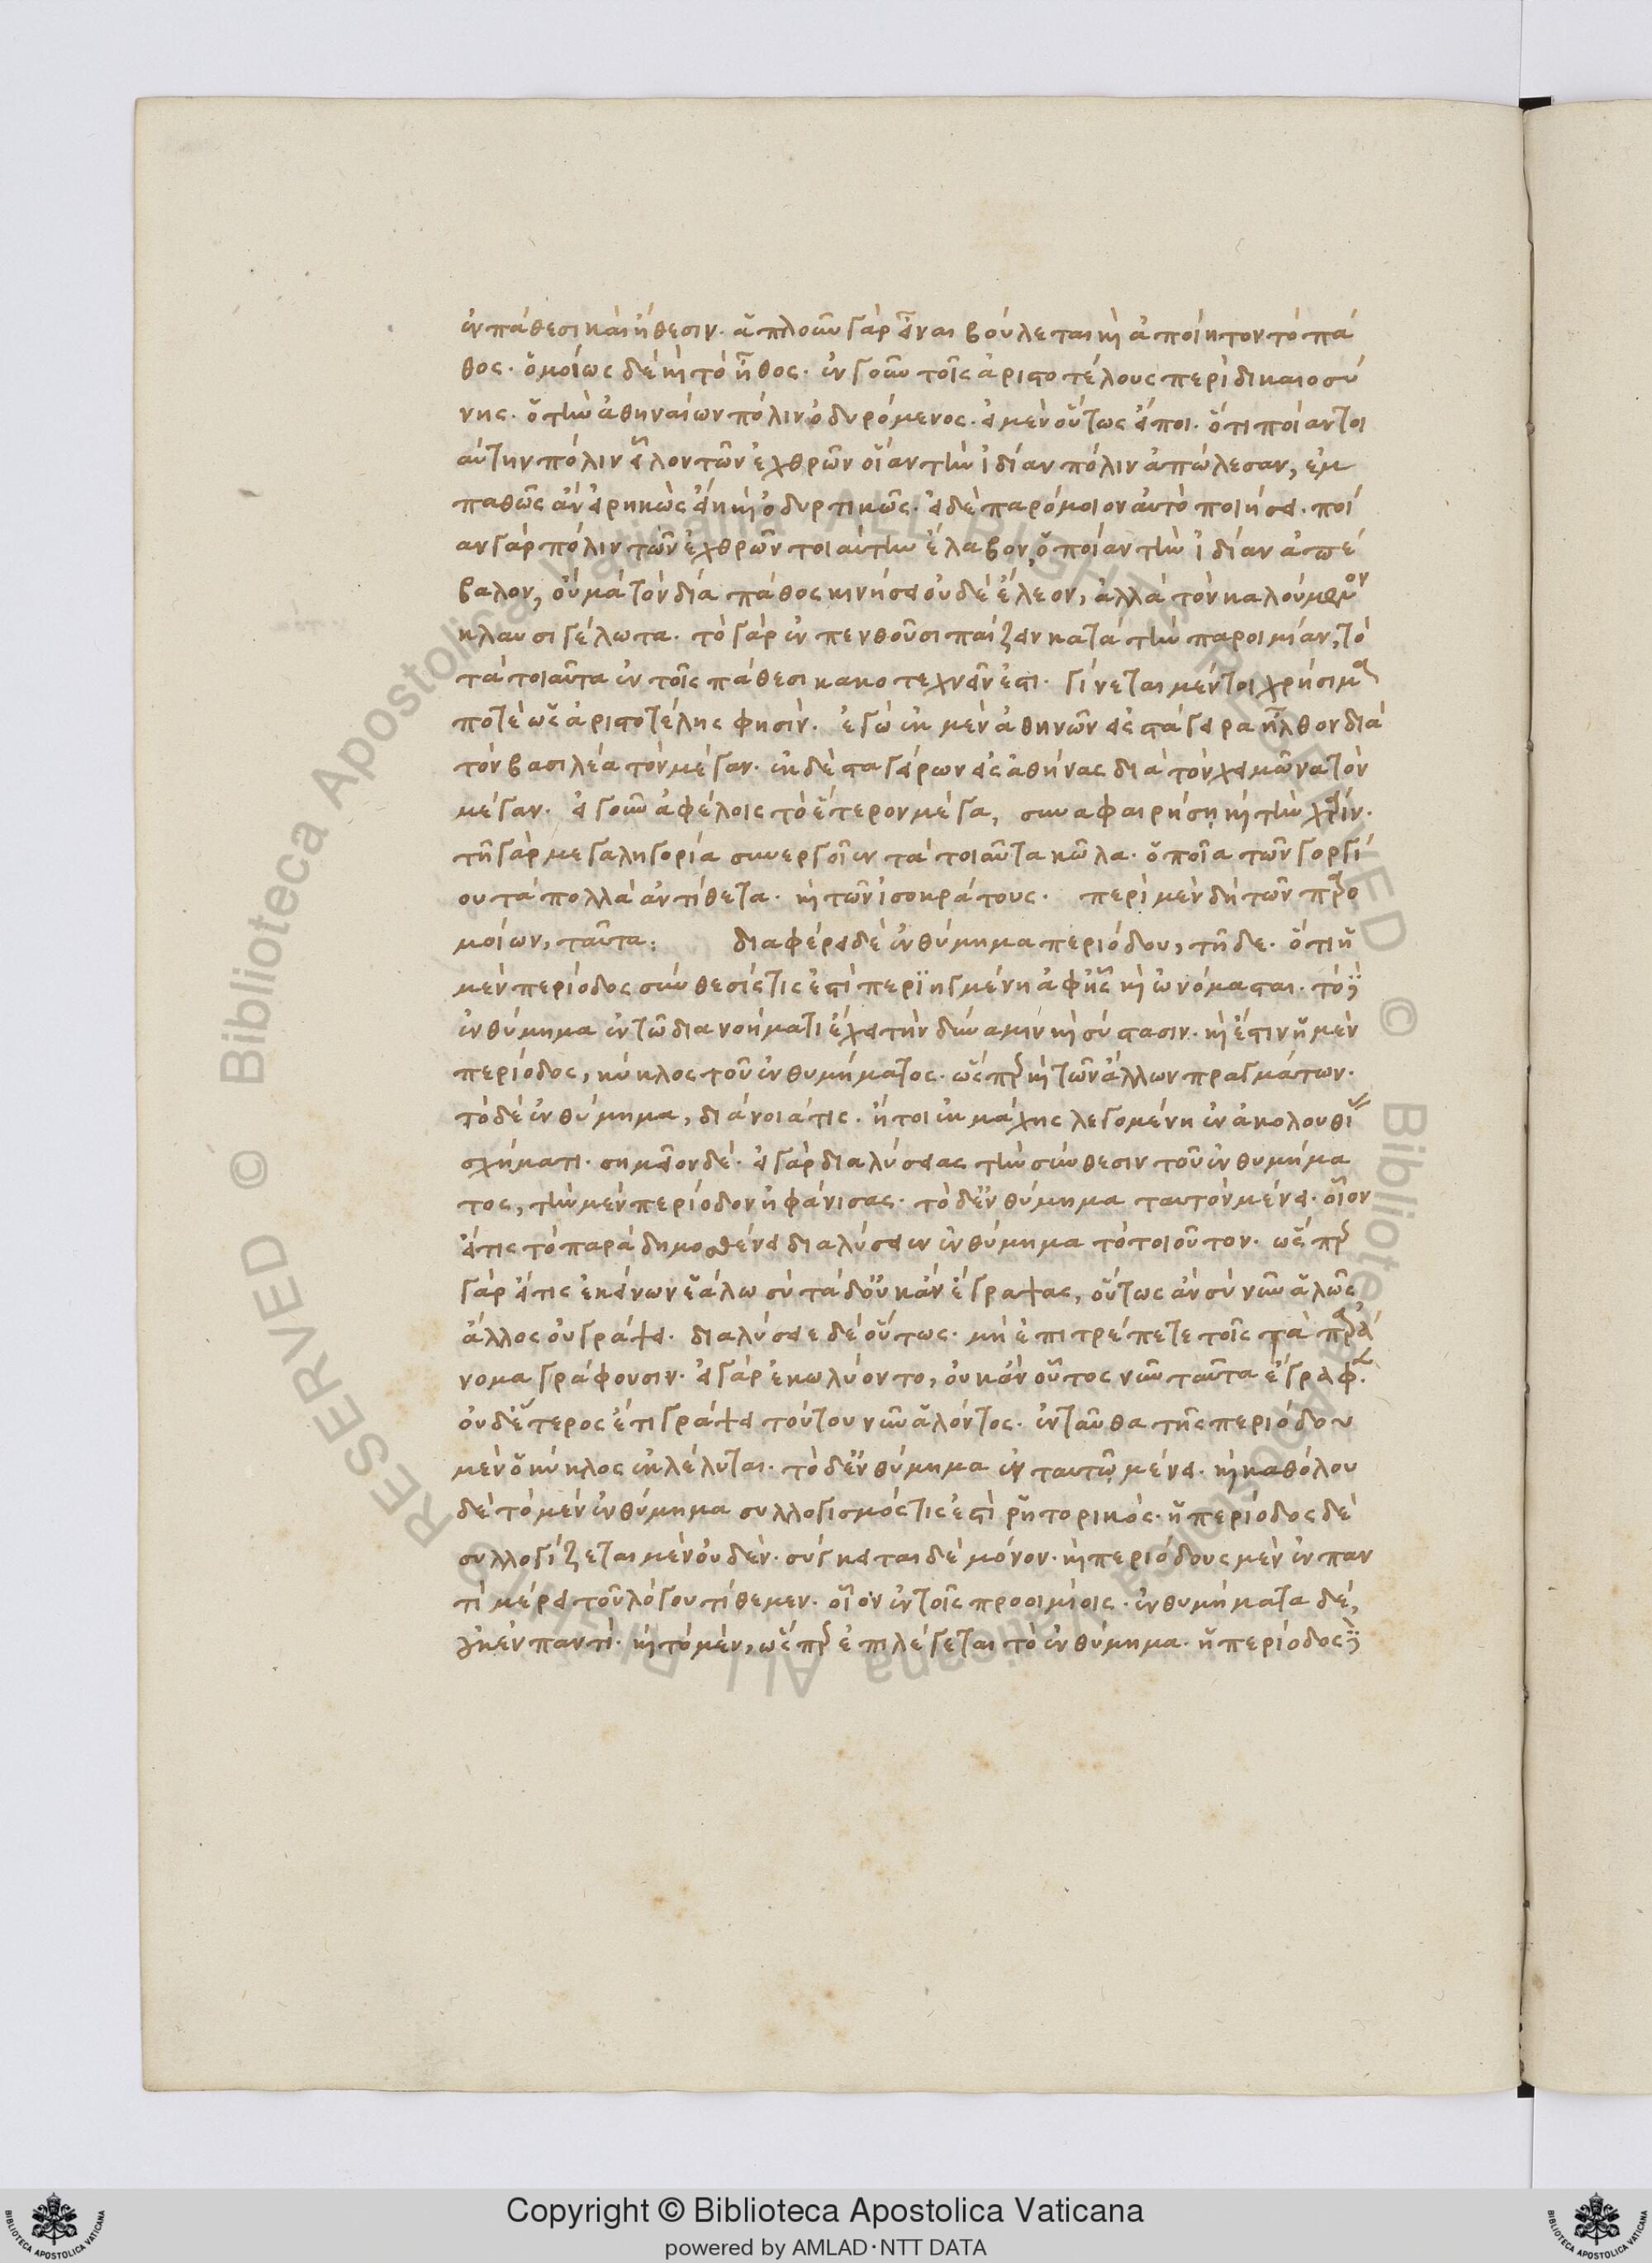 ἐν πάθεσι καὶ ἤθεσιν. ἁπλοῦν γὰρ εἶναι βούλεται καὶ ἀποίητον τὸ πά
θος. ὁμοίως δὲ καὶ τὸ ἦθος. ἐν γοῦν τοῖς ἀριστοτέλους περὶ δικαιοσύ
νης. ὁ τὴν ἀθηναίων πόλιν ὀδυρόμενος. εἰ μὲν οὕτως εἴποι. ὅτι ποίαν τοι
αύτην πόλιν εἷλον τῶν ἐχθρῶν οἵαν τὴν ἰδίαν πόλιν ἀπώλεσαν, ἐμ
παθῶς ἂν εἰρηκὼς εἴη καὶ ὀδυρτικῶς. εἰ δὲ παρόμοιον αὐτὸ ποιήσει. ποί
αν γὰρ πόλιν τῶν ἐχθρῶν τοιαύτην ἔλαβον, ὁποίαν τὴν ἰδίαν ἀπέ
βαλον, οὐ μὰ τὸν δία πάθος κινήσει οὐδὲ ἔλεον, ἀλλὰ τὸν καλούμενον
κλαυσιγέλωτα. τὸ γὰρ ἐν πενθοῦσι παίζειν κατὰ τὴν παροιμίαν, τὸ
τὰ τοιαῦτα ἐν τοῖς πάθεσι κακοτεχνεῖν ἐστι. γίνεται μέντοι χρήσιμα
ποτὲ ὡς ἀριστοτέλης φησὶν. ἐγὼ ἐκ μὲν ἀθηνῶν εἰς στάγειρα ἦλθον διὰ
τὸν βασιλέα τὸν μέγαν. ἐκ δὲ σταγείρων εἰς ἀθήνας διὰ τὸν χειμῶνα τὸν
μέγαν. εἰ γοῦν ἀφέλοις τὸ ἕτερον μέγα, συναφαιρήσῃ καὶ τὴν χάριν.
τῇ γὰρ μεγαληγορία συνεργοῖεν τὰ τοιαῦτα κῶλα. ὁποῖα τῶν γοργί
ου τὰ πολλὰ ἀντίθετα. καὶ τῶν ἰσοκράτους. περὶ μὲν δὴ τῶν παρο
μοίων, ταῦτα: διαφέρει δὲ ἐνθύμημα περιόδου, τῇδε. ὅτι ἡ
μὲν περίοδος σύνθεσίς τις ἐστὶ περιηγμένη ἀφ' ἧς καὶ ὠνόμασται. τὸ δὲ
ἐνθύμημα ἐν τῷ διανοήματι ἔχει τὴν δύναμιν καὶ σύστασιν. καὶ ἔστιν ἡ μὲν
περίοδος, κύκλος τοῦ ἐνθυμήματος. ὥσπερ καὶ τῶν ἄλλων πραγμάτων.
τὸ δὲ ἐνθύμημα, διάνοιά τις. ἤτοι ἐκ μάχης λεγομένη ἐν ἀκολουθίας
σχήματι. σημεῖον δὲ. εἰ γὰρ διαλύσειας τὴν σύνθεσιν τοῦ ἐνθυμήμα
τος, τὴν μὲν περίοδον ἠφάνισας. τὸ δ' ἐνθύμημα ταυτὸν μένει. οἷον
εἴ τις τὸ παρὰ δημοσθένει διαλύσειεν ἐνθύμημα τὸ τοιοῦτον. ὥσπερ
γὰρ εἴ τις ἐκείνων ἑάλω σὺ τάδ' οὐκ ἂν ἔγραψας, οὕτως ἂν σὺ νῦν ἁλῶς
ἄλλος οὐ γράψει. διαλύσειε δὲ οὕτως. μὴ ἐπιτρέπετε τοῖς τὰ παρά
νομα γράφουσιν. εἰ γὰρ ἐκωλύοντο, οὐκ ἂν οὗτος νῦν ταῦτα ἔγραφεν.
οὐδ' ἕτερος ἔτι γράψει τούτου νῦν ἁλόντος. ἐνταῦθα τῆς περιόδου
μὲν ὁ κύκλος ἐκλέλυται. τὸ δ' ἐνθύμημα ἐν ταυτῷ μένει. καὶ καθόλου
δὲ τὸ μὲν ἐνθύμημα συλλογισμός τις ἐστὶ ῥητορικὸς. ἡ περίοδος δὲ
συλλογίζεται μὲν οὐδὲν. σύγκειται δὲ μόνον. καὶ περιόδους μὲν ἐν παν
τὶ μέρει τοῦ λόγου τίθεμεν. οἷον ἐν τοῖς προοιμίοις. ἐνθυμήματα δέ,
οὐκ ἐν παντὶ. καὶ τὸ μὲν, ὥσπερ ἐπιλέγεται τὸ ἐνθύμημα. ἡ περίοδος δὲ